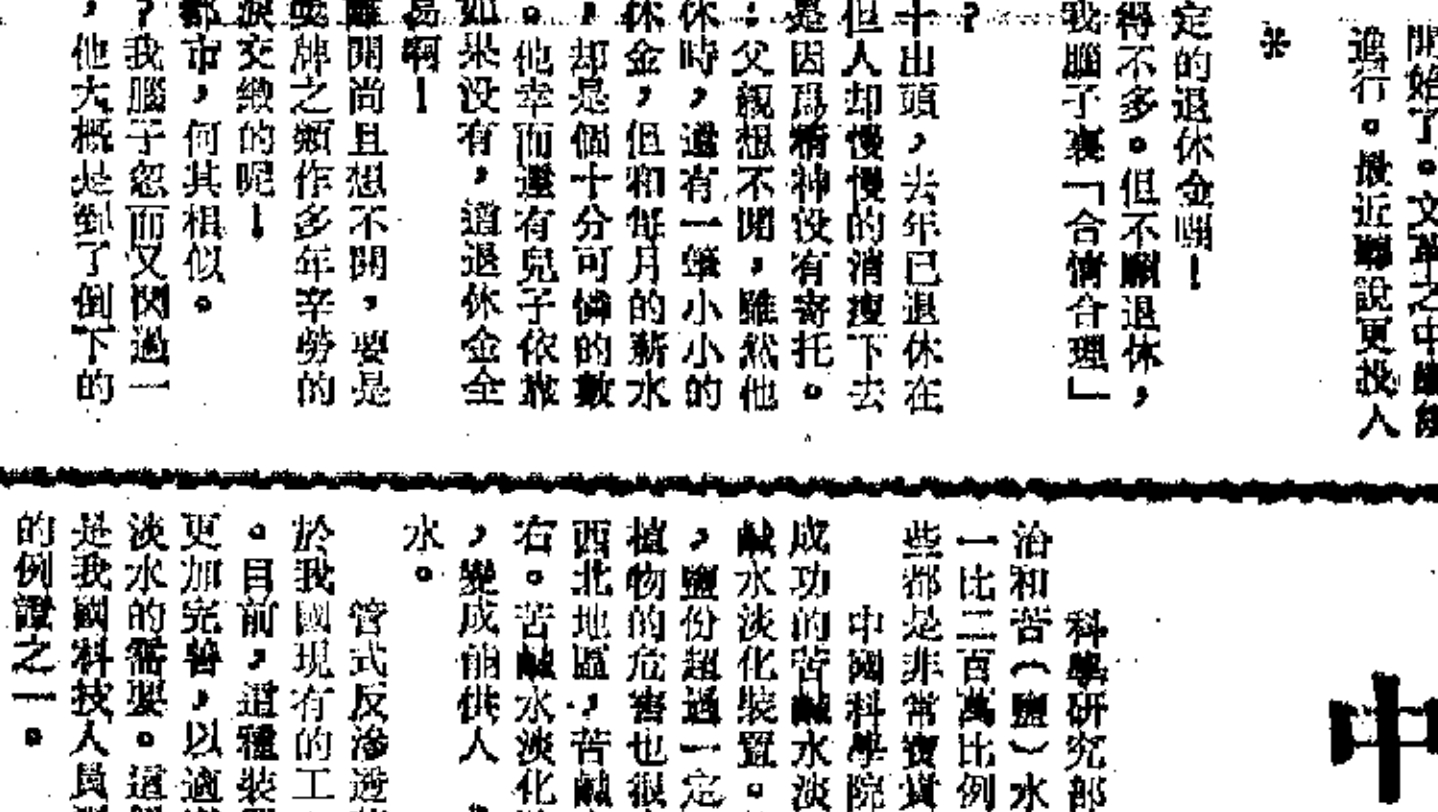 開始了。文革之中繼續
進行。最近聽說更投人
定的退休金嗍！
得不多。但不願退休，
我腦子裏「合情合理」
？
十出頭，去年已退休在
但人却慢慢的消瘦下去
是因爲精神没有寄托。
：父親想不開，雖然他
休時，還有一筆小小的
休金，但和每月的薪水
，却是個十分可憐的數
。他幸而還有兒子依靠
如果没有，這退休金全
易啊！
離開尚且想不開，要是
獎牌之類作多年辛勞的
淚交緻的呢！
都市，何其相似。
？我腦子忽而又閃過一
，他大概是到了倒下的
中
科學研究部
治和苦（鹽）水
一比二百萬比例
些都是非常寶貴
中國科學院
成功的苦鹹水淡
鹹水淡化裝置。
，鹽份超過一定
植物的危害也很
西北地區，苦鹹
右。苦鹹水淡化
，變成能供人
水。
管式反滲透
於我國現有的工
。目前，這種裝
更加完善，以適
淡水的需要。這
是我國科技人員
的例證之一。